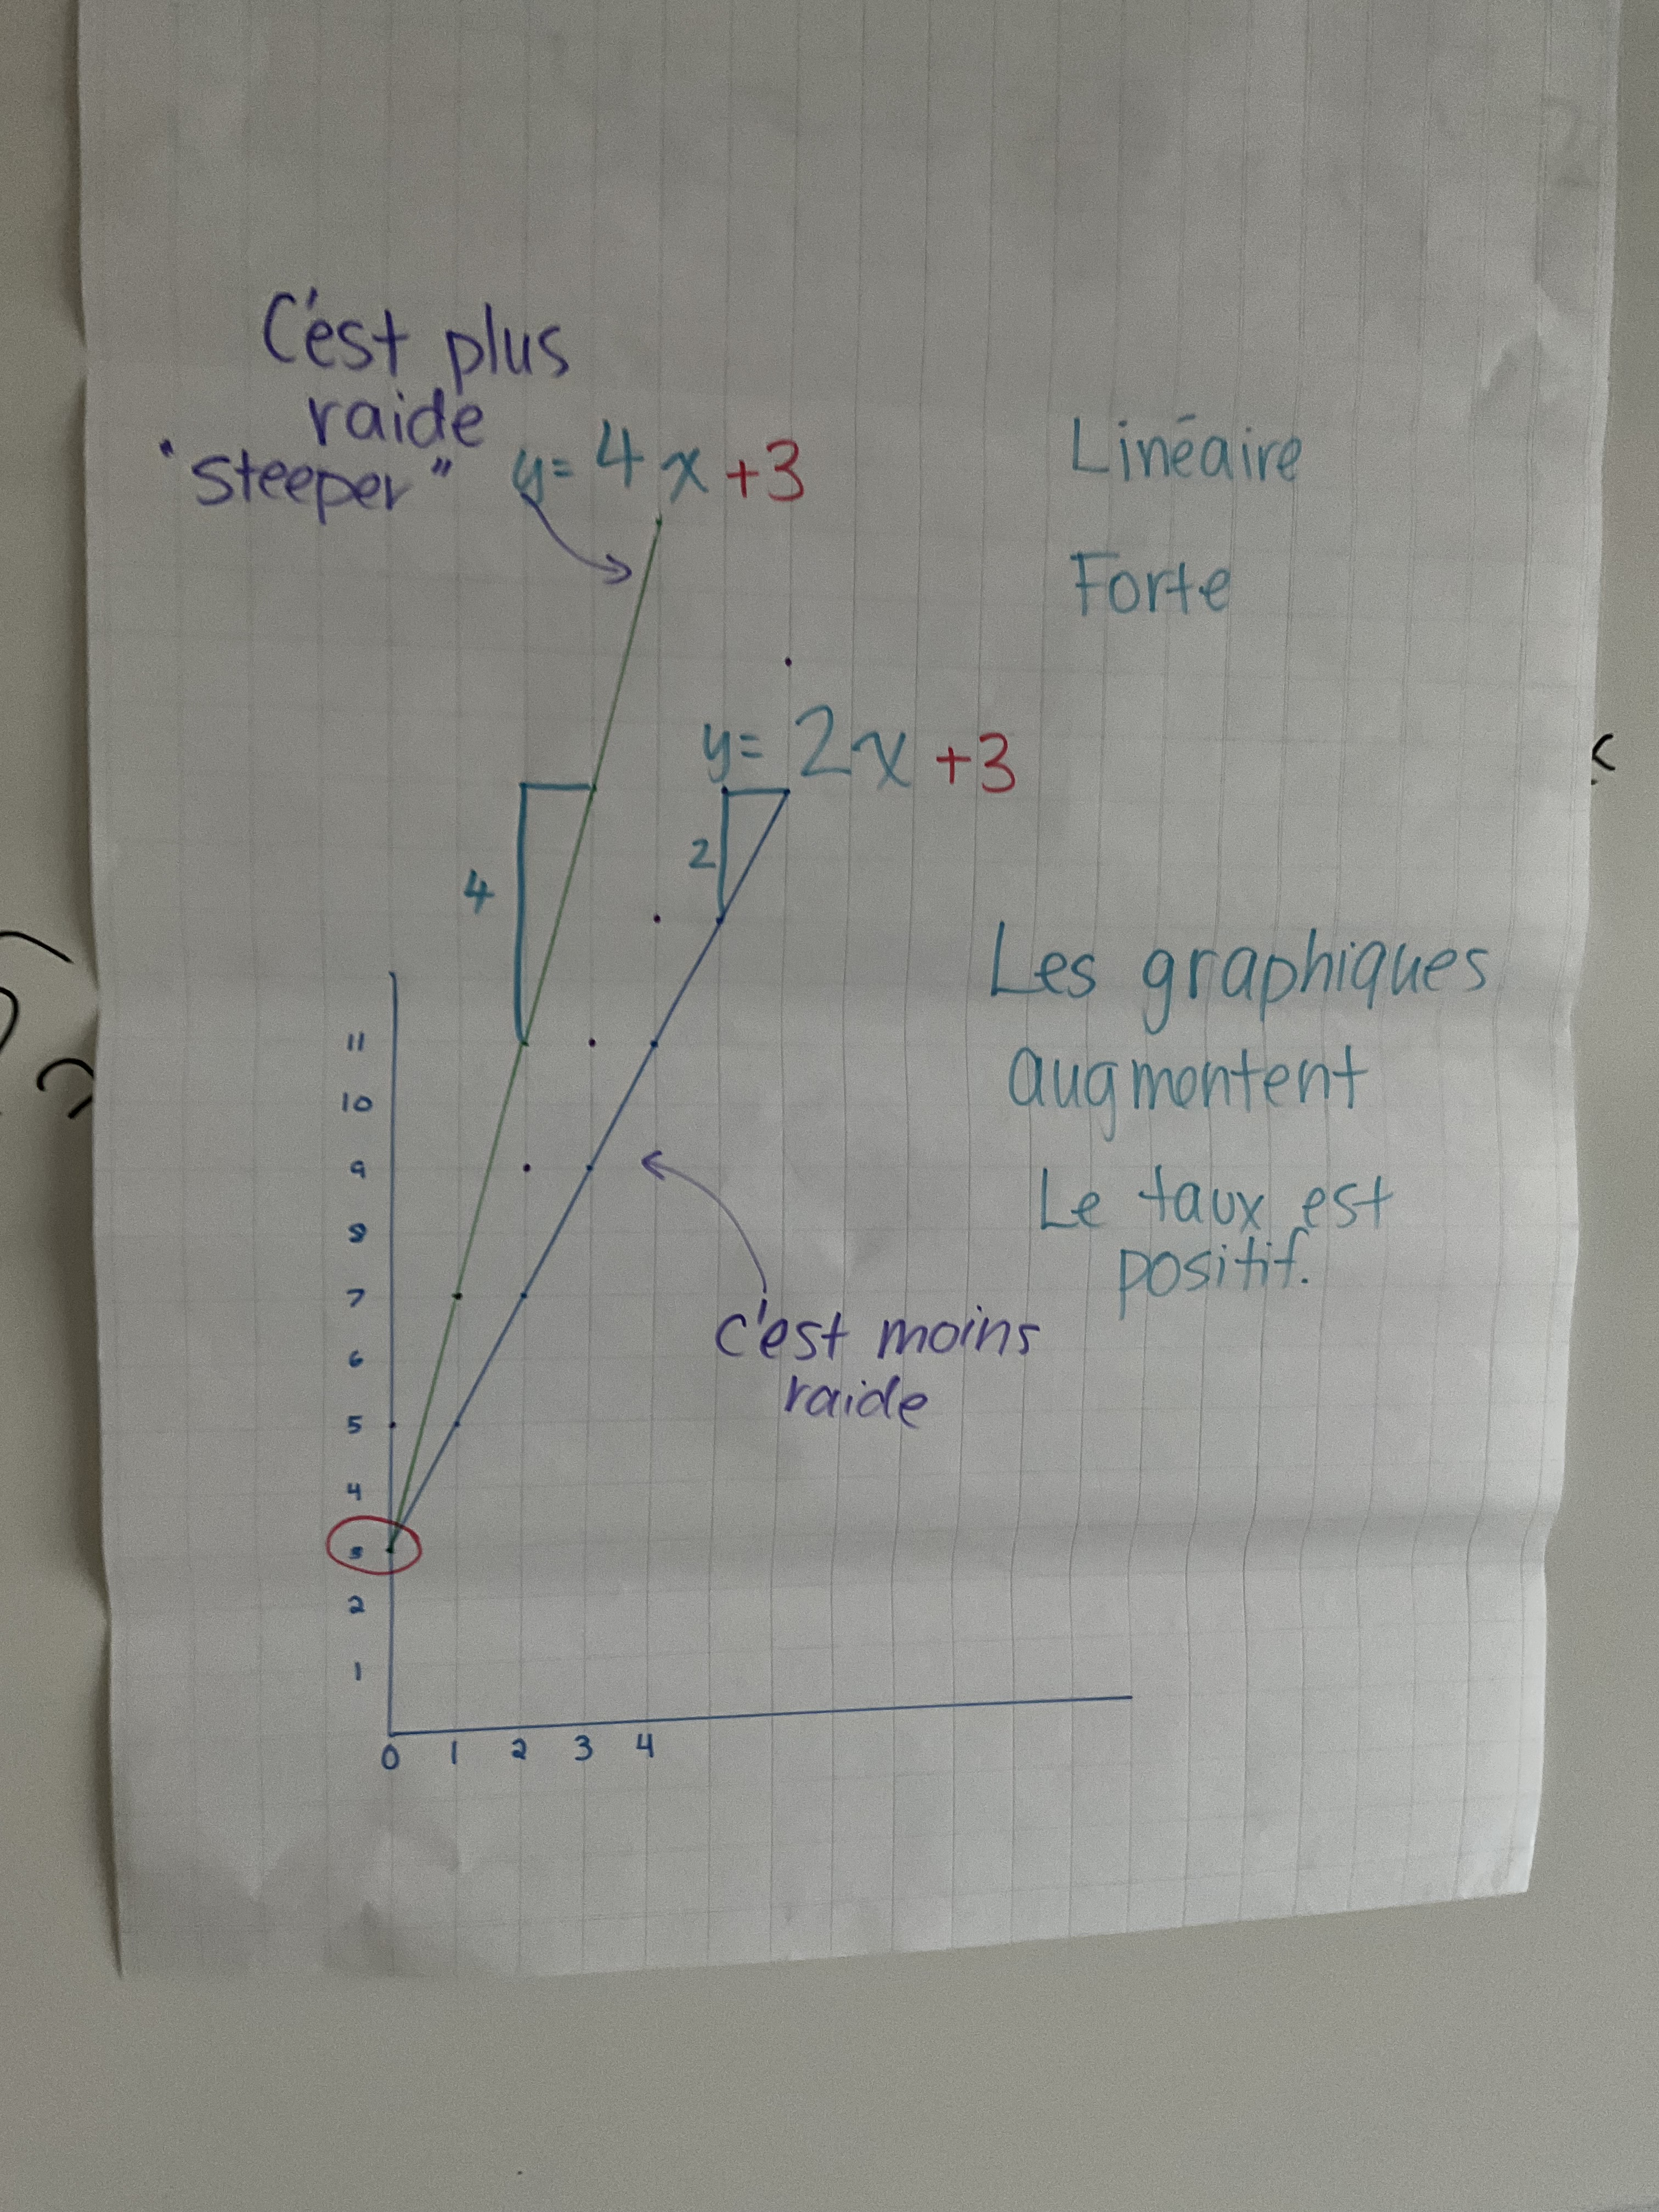 C'est plus
raide
"steeper"
y= 4x +3
Linéaire
Forte
y= 2x +3
4
2
Les graphiques
augmentent
Le taux est
positif.
c'est moins
raide
11
10
9
8
7
6
5
4
3
2
1
0 1 2 3 4